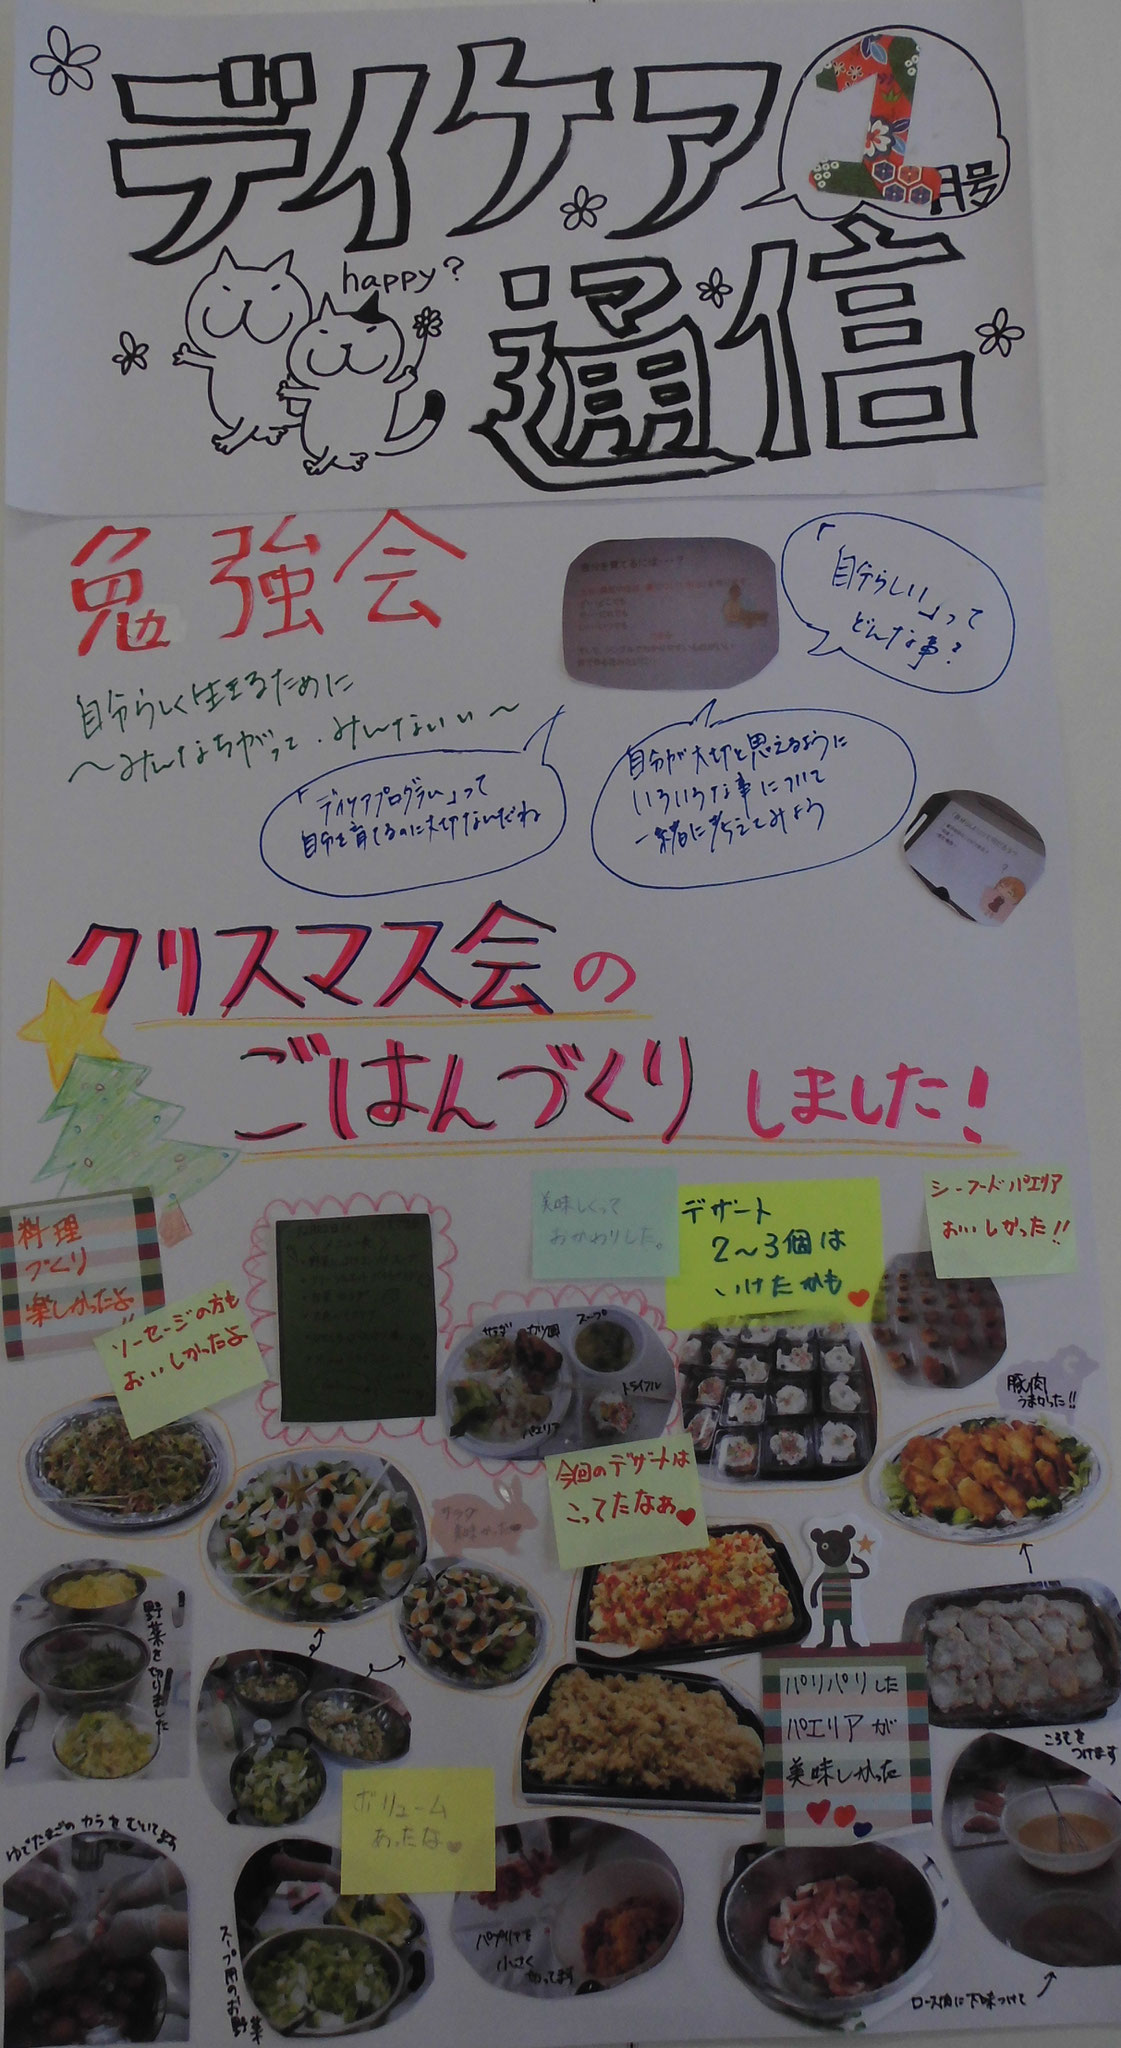 デイケア
1月号
happy?
通信
勉強会
自分らしく生きるために
～みんなちがって、みんないい～
自分を育てるには…？
「自分らしい」って
どんな事？
「デイケアプログラム」って
自分を育てるのに大切なんだね
自分が大切と思えるように
いろいろな事について
一緒に考えてみよう
クリスマス会の
ごはんづくりしました！
料理
づくり
楽しかったよ!!
ソーセージの方も
おいしかったよ
美味しくって
おかわりした。
デザート
2～3個は
いけたかも
シーフードパエリア
おいしかった!!
サラダ
カツ
スープ
トライフル
パエリア
豚肉
うまかった!!
今回のデザートは
こってたなぁ
サラダ
美味かった
野菜を切りました
パリパリした
パエリアが
美味しかった
ボリューム
あったな
ころもを
つけます
ゆでたまごのカラをむいてます
スープ用のお野菜
パプリカを
小さく
切ってます
ロース肉に下味つけて